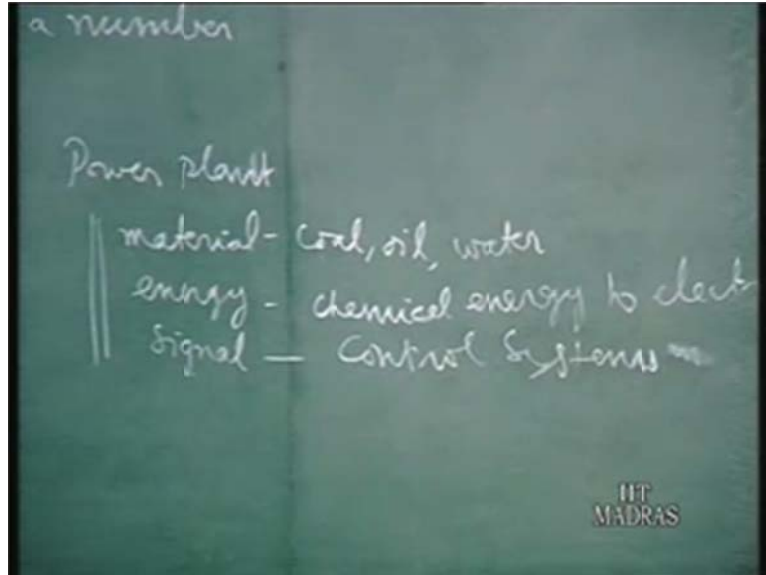 a number
Power plant
material - coal, oil, water
energy - chemical energy to elect
Signal — Control Systems
IIT
MADRAS